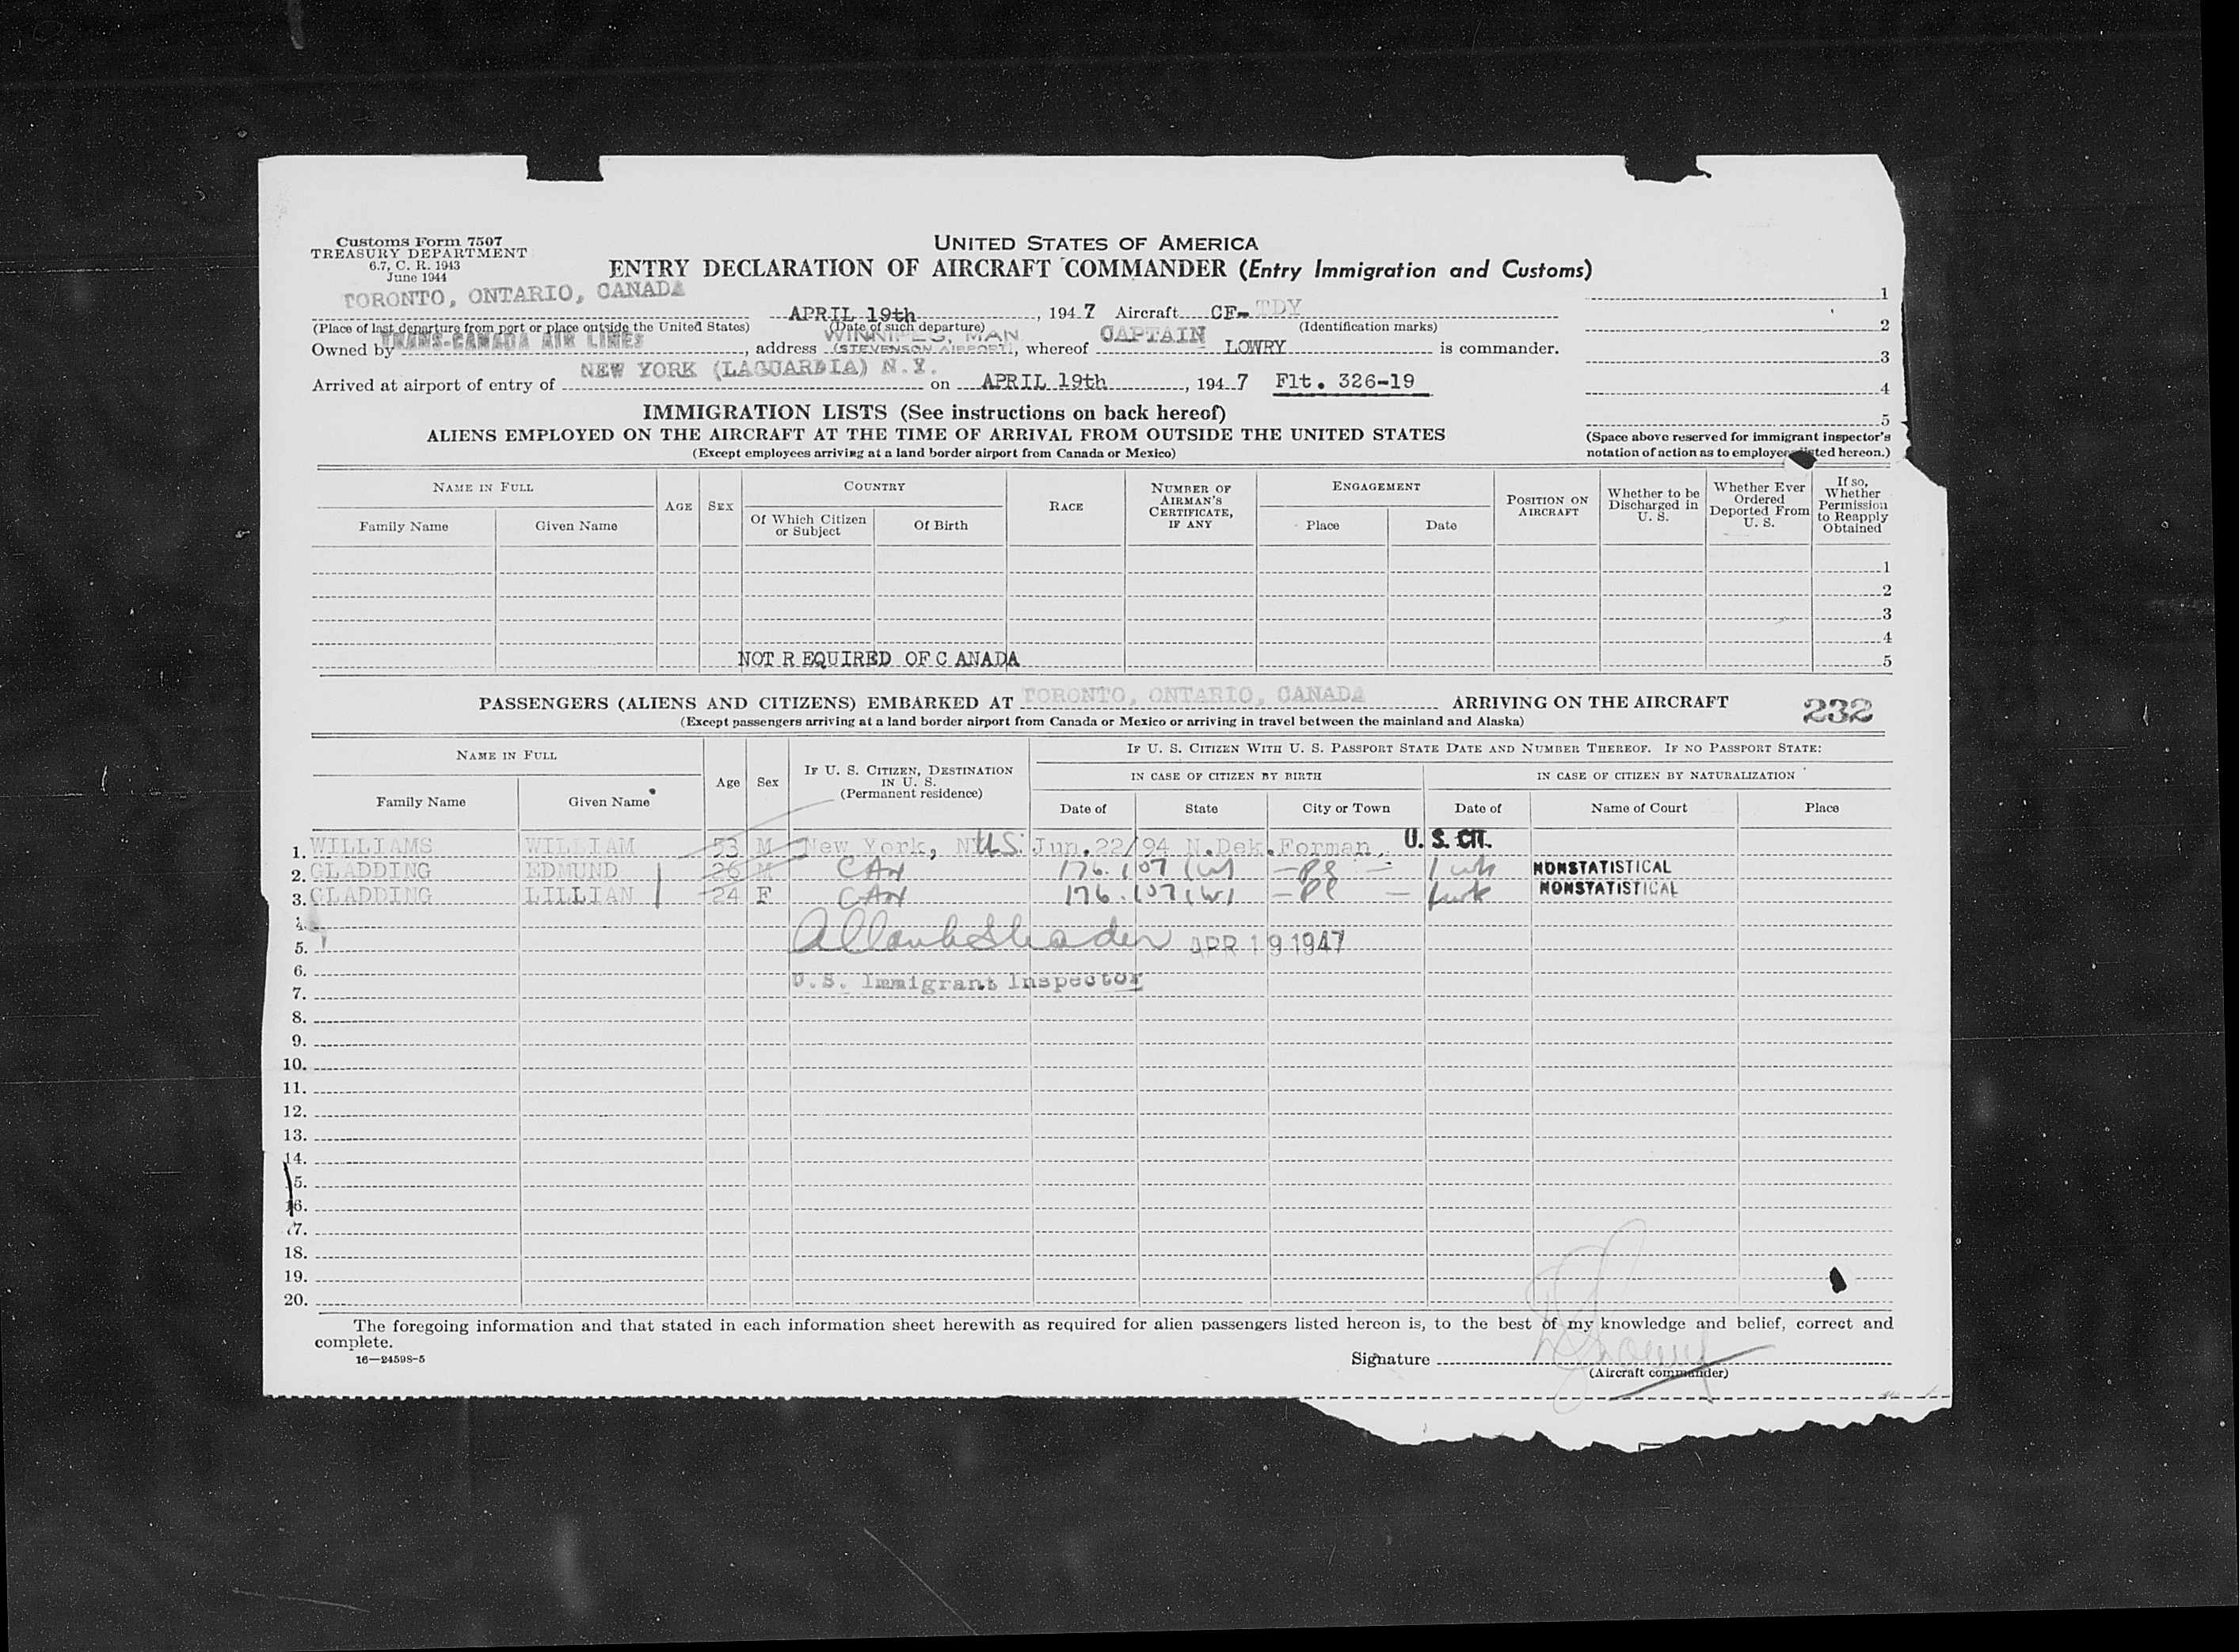 Customs Form 7507
TREASURY DEPARTMENT
6.7, C. R. 1943
June 1944
UNITED STATES OF AMERICA
ENTRY DECLARATION OF AIRCRAFT COMMANDER (Entry Immigration and Customs)
TORONTO, ONTARIO, CANADA APRIL 19th, 1947 Aircraft CF-TDY
(Place of last departure from port or place outside the United States) (Date of such departure) (Identification marks)
Owned by TRANS-CANADA AIR LINES, address WINNIPEG, MAN (STEVENSON AIRPORT), whereof CAPTAIN LOWRY is commander.
Arrived at airport of entry of NEW YORK (LAGUARDIA) N.Y. on APRIL 19th, 1947 Flt. 326-19
1
2
3
4
5
(Space above reserved for immigrant inspector's
notation of action as to employees listed hereon.)
IMMIGRATION LISTS (See instructions on back hereof)
ALIENS EMPLOYED ON THE AIRCRAFT AT THE TIME OF ARRIVAL FROM OUTSIDE THE UNITED STATES
(Except employees arriving at a land border airport from Canada or Mexico)
NAME IN FULL
Family Name Given Name
AGE
SEX
COUNTRY
Of Which Citizen or Subject Of Birth
RACE
NUMBER OF AIRMAN'S CERTIFICATE, IF ANY
ENGAGEMENT
Place Date
POSITION ON AIRCRAFT
Whether to be Discharged in U. S.
Whether Ever Ordered Deported From U. S.
If so, Whether Permission to Reapply Obtained
1
2
3
4
NOT R EQUIRED OF C ANADA 5
PASSENGERS (ALIENS AND CITIZENS) EMBARKED AT TORONTO, ONTARIO, CANADA ARRIVING ON THE AIRCRAFT 232
(Except passengers arriving at a land border airport from Canada or Mexico or arriving in travel between the mainland and Alaska)
NAME IN FULL
Family Name Given Name
Age
Sex
IF U. S. CITIZEN, DESTINATION IN U. S. (Permanent residence)
IF U. S. CITIZEN WITH U. S. PASSPORT STATE DATE AND NUMBER THEREOF. IF NO PASSPORT STATE:
IN CASE OF CITIZEN BY BIRTH IN CASE OF CITIZEN BY NATURALIZATION
Date of State City or Town Date of Name of Court Place
1. WILLIAMS WILLIAM 53 M New York, N U.S. Jun.22/94 N.Dek.Forman, U. S. CIT.
2. GLADDING EDMUND 26 M CAN 176.107 (W) 1 wk NONSTATISTICAL
3. GLADDING LILLIAN 24 F CAN 176.107 (W) 1 wk NONSTATISTICAL
4.
5. APR 19 1947
6.
7. U.S. Immigrant Inspector
8.
9.
10.
11.
12.
13.
14.
15.
16.
17.
18.
19.
20.
The foregoing information and that stated in each information sheet herewith as required for alien passengers listed hereon is, to the best of my knowledge and belief, correct and
complete.
16—24598-5
Signature
(Aircraft commander)